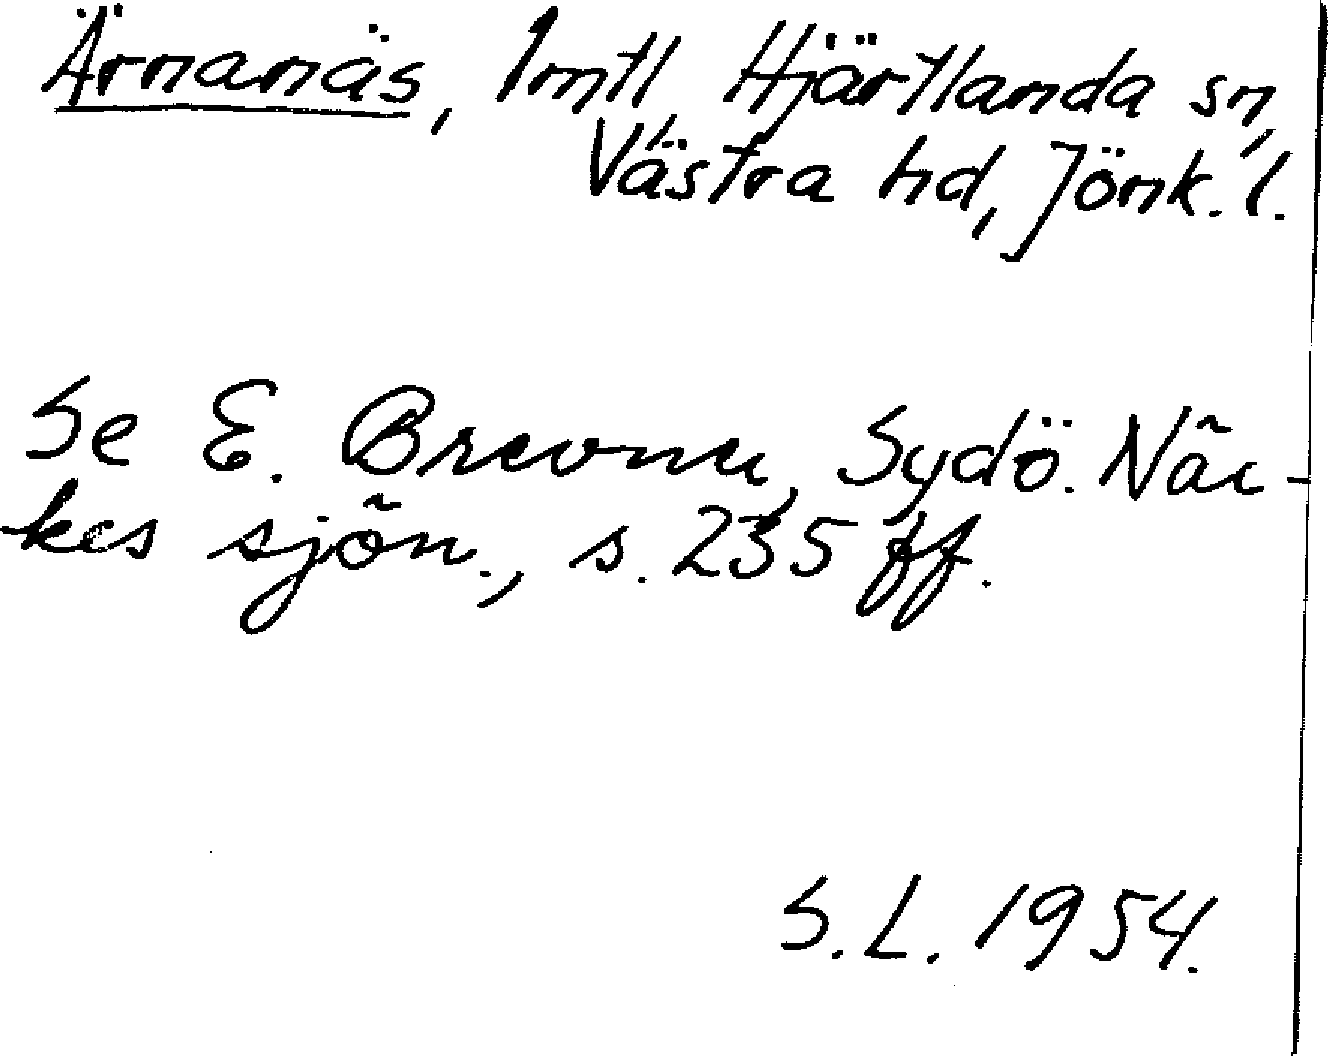 Ärnanäs, 1 mtl, Hjärtlanda sn,
Västra hd, Jönk. l.
Se E. Brevner, Sydö. När-
kes sjön., s. 235 ff.
S. L. 1954.